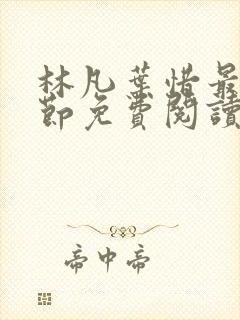 林凡葉惜最
節免費閱讀
帝中帝